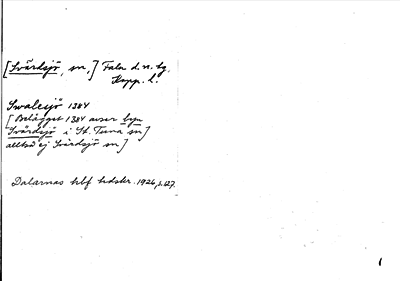 [Svärdsjö, sn,] Falu d. n. bg.
Kopp. l.
Swalesjö 1384
[Belägget 1384 avser byn
Svärdsjö i St. Tuna sn]
alltså ej Svärdsjö sn]
Dalarnas hbf tidskr. 1926, s. 127.
1